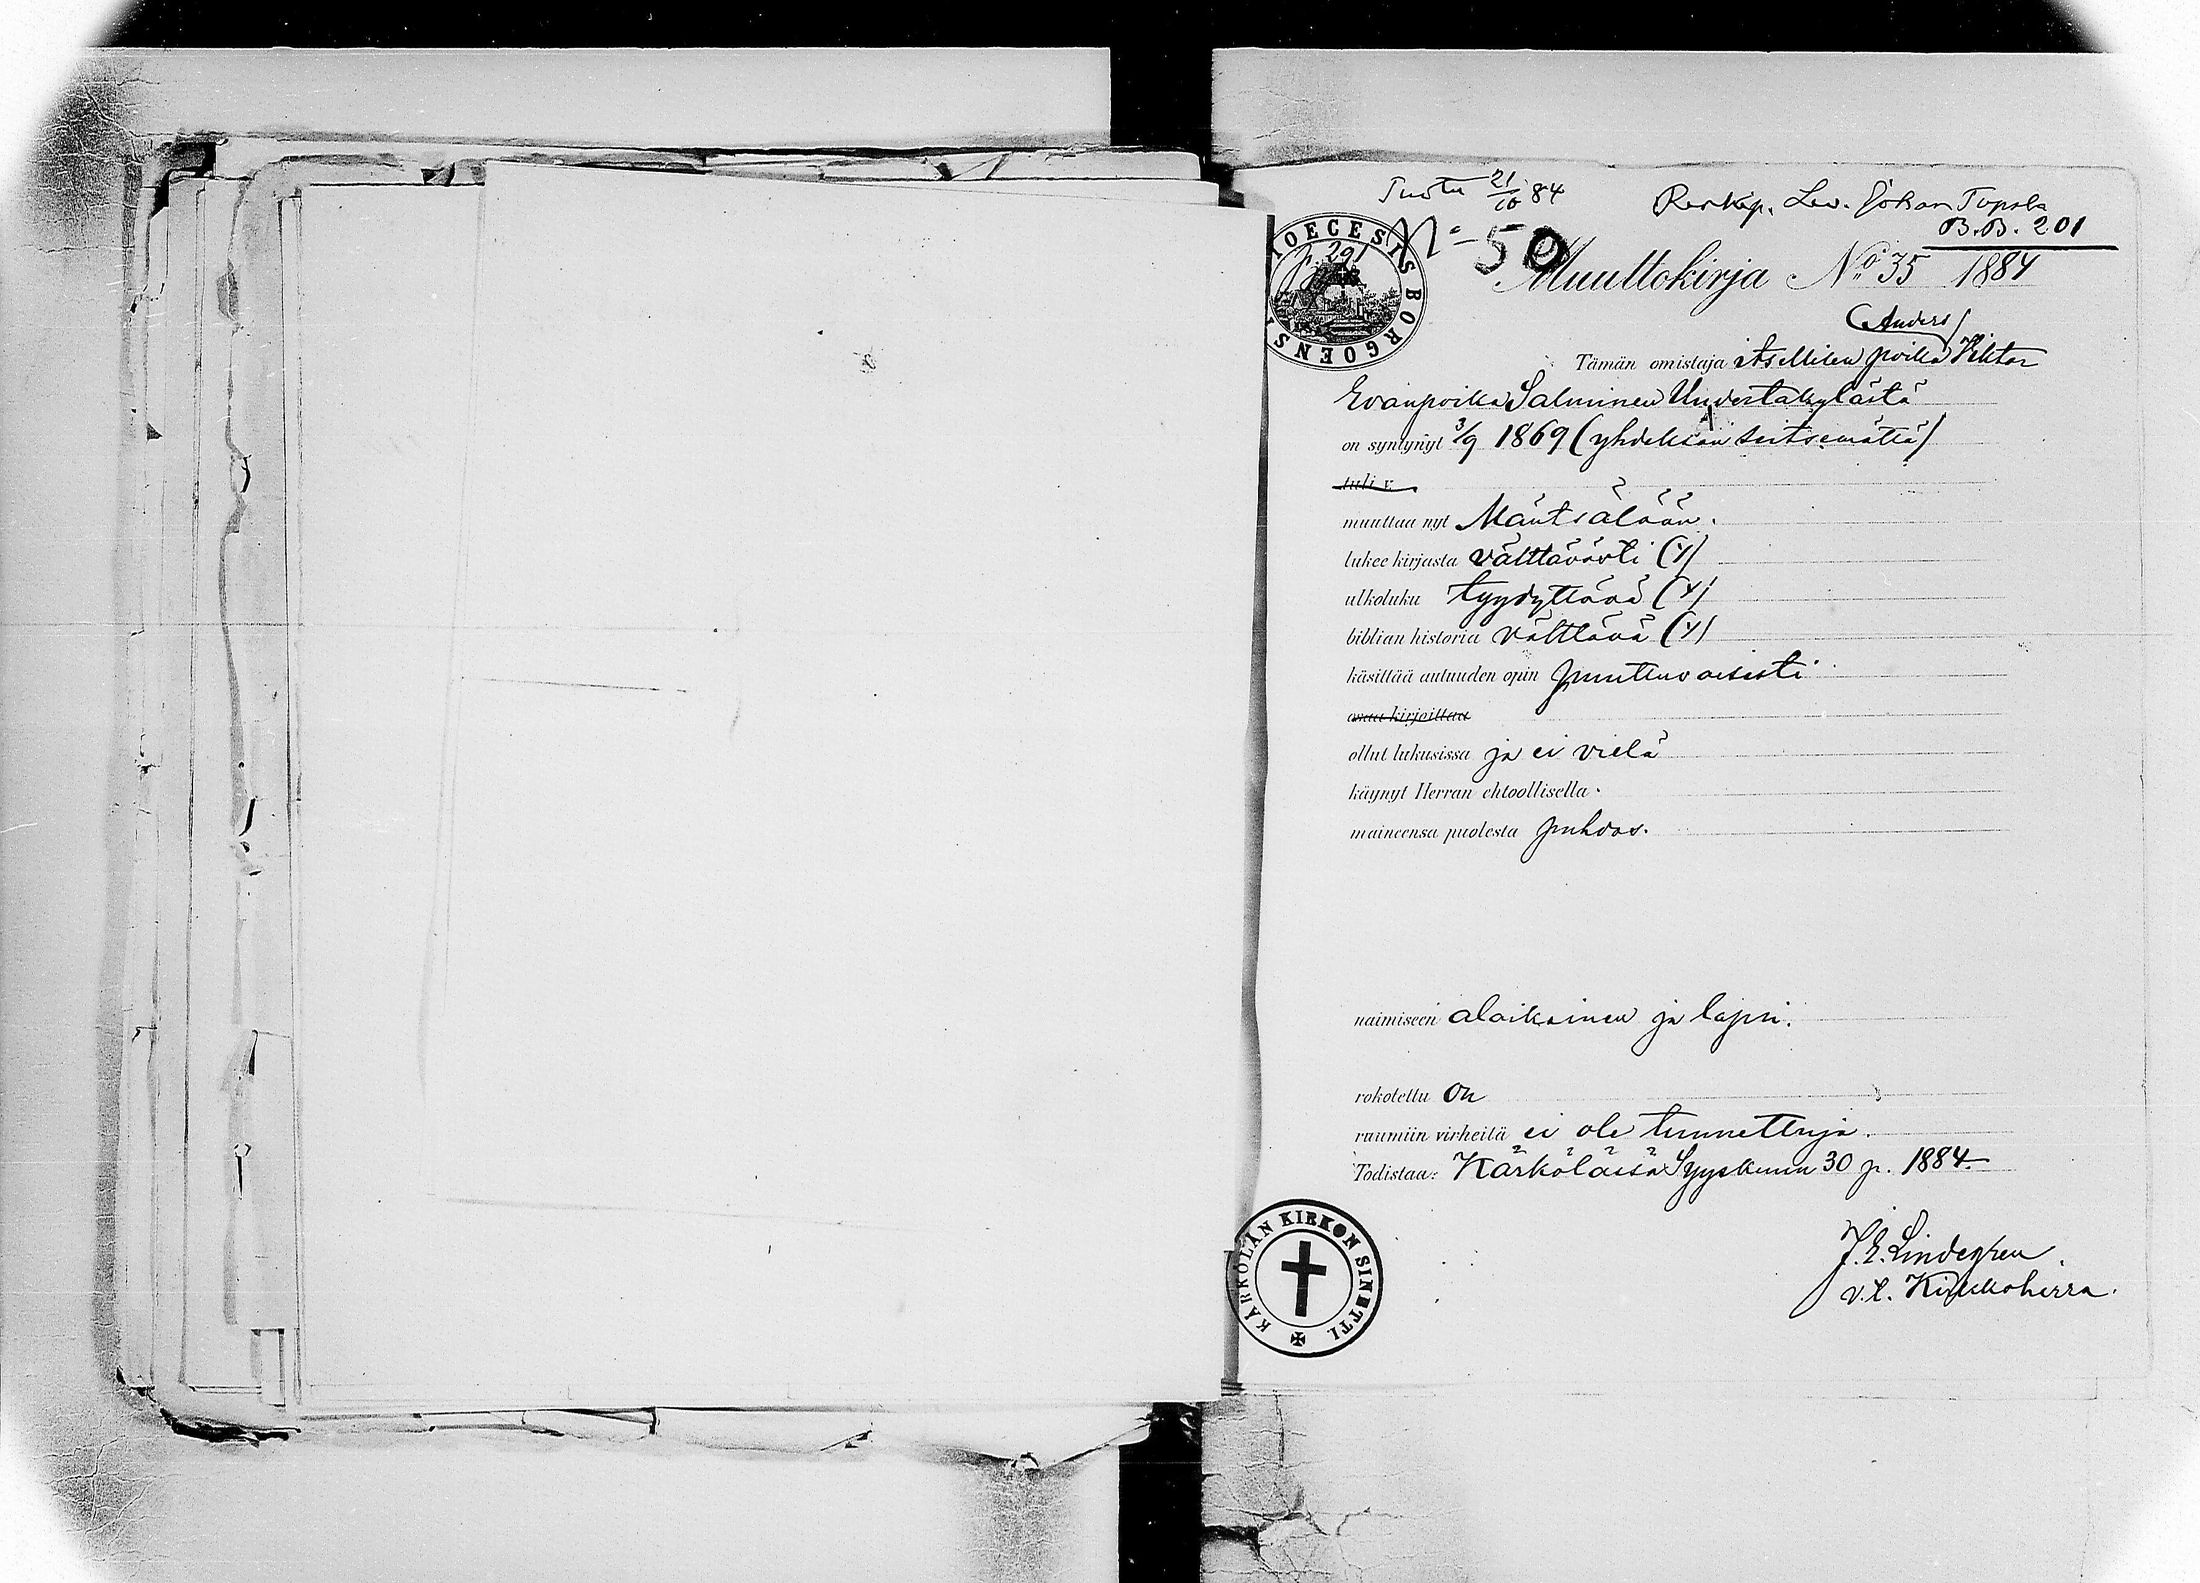 Tuotu 21/10 84
Johan Topola
B.B. 201
DIOECESIS BORGOENSIS
p. 291
No 50
Muuttokirja No 35 1884
(Anders)
Tämän omistaja Itsellisen poika Viktor
Evanpoika Salminen
on syntynyt 3/9 1869 (yhdeksän seitsemättä)
tuli v.
muuttaa nyt Mäntsälään.
lukee kirjasta välttävästi (Y)
ulkoluku tyydyttävä (Y)
biblian historia välttävä (Y)
käsittää autuuden opin puuttuvaisesti
osaa kirjoittaa
ollut lukusissa ja ei vielä
käynyt Herran ehtoollisella.
maineensa puolesta puhdas.
naimiseen alaikainen ja lapsi.
rokotettu on
ruumiin virheitä ei ole tunnettuja.
Todistaa: Kärkölässä Syyskuun 30 p. 1884.
KÄRKÖLÄN KIRKON SINETTI
J. E. Lindegren
v.t. Kirkkoherra.